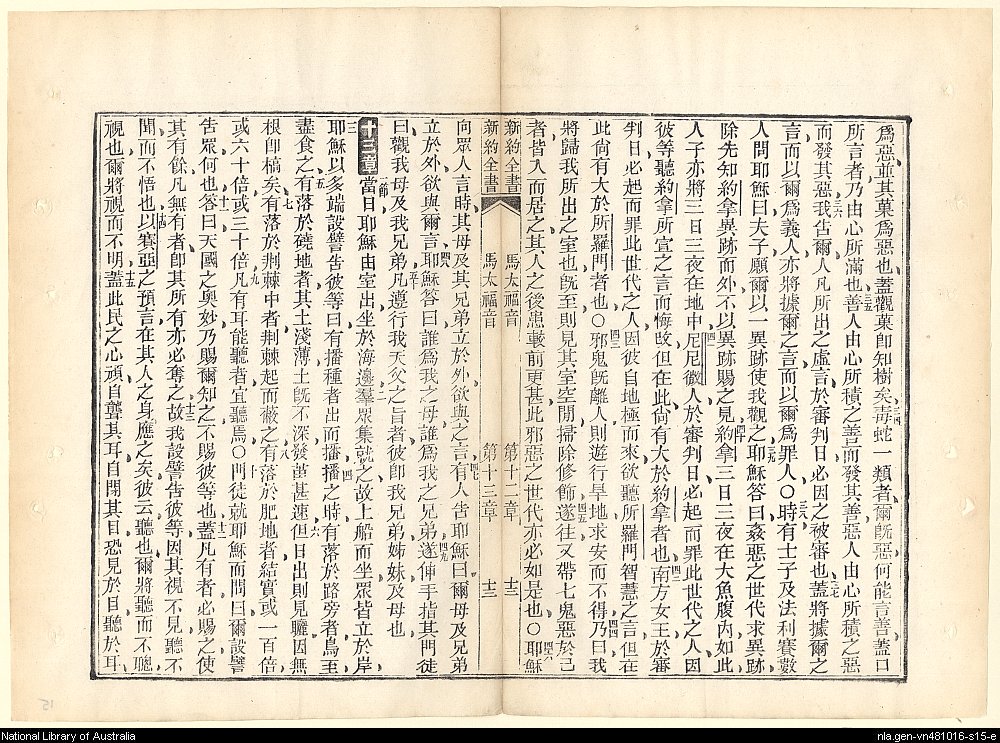 爲惡並其菓爲惡也蓋觀菓卽知樹矣毒蛇一類者爾旣惡何能言善蓋口
所言者乃由心所滿也善人由心所積之善而發其善惡人由心所積之惡
而發其惡我告爾人凡所出之虛言於審判日必因之被審也蓋將據爾之
言而以爾爲義人亦將據爾之言而以爾爲罪人○時有士子及法利賽數
人問耶穌曰夫子願爾以一異跡使我觀之耶穌答曰姦惡之世代求異跡
除先知約拿異跡而外不以異跡賜之見約拿三日三夜在大魚腹內如此
人子亦將三日三夜在地中尼尼微人於審判日必起而罪此世代之人因
彼等聽約拿所宣之言而悔改但在此尙有大於約拿者也南方女王於審
判日必起而罪此世代之人因彼自地極而來欲聽所羅門智慧之言但在
此尙有大於所羅門者也○邪鬼旣離人則遊行旱地求安而不得乃曰我
將歸我所出之室也旣至則見其室空閒掃除修飾遂往又帶七鬼惡於己
者皆入而居之其人之後患較前更甚此邪惡之世代亦必如是也○耶穌
新約全書 馬太福音 第十二章 十三
新約全書 馬太福音 第十三章 十三
向眾人言時其母及其兄弟立於外欲與之言有人告耶穌曰爾母及兄弟
立於外欲與爾言耶穌答曰誰爲我之母誰爲我之兄弟遂伸手指其門徒
曰觀我母及我兄弟凡遵行我天父之旨者彼卽我兄弟姊妹及母也
十三章 一節 當日耶穌由室出坐於海邊羣眾集就之故上船而坐眾皆立於岸
耶穌以多端設譬告彼等曰有播種者出而播播之時有落於路旁者鳥至
盡食之有落於磽地者其土淺薄土旣不深發苗甚速但日出則見曬因無
根卽槁矣有落於荆棘中者荆棘起而蔽之有落於肥地者結實或一百倍
或六十倍或三十倍凡有耳能聽者宜聽焉○門徒就耶穌而問曰爾設譬
告眾何也答曰天國之奧妙乃賜爾知之不賜彼等也蓋凡有者必賜之使
其有餘凡無有者卽其所有亦必奪之故我設譬告彼等因其視不見聽不
聞而不悟也以賽亞之預言在其人之身應之矣彼云聽也爾將聽而不聰
視也爾將視而不明蓋此民之心頑自聾其耳自閉其目恐見於目聽於耳
National Library of Australia
nla.gen-vn481016-s15-e